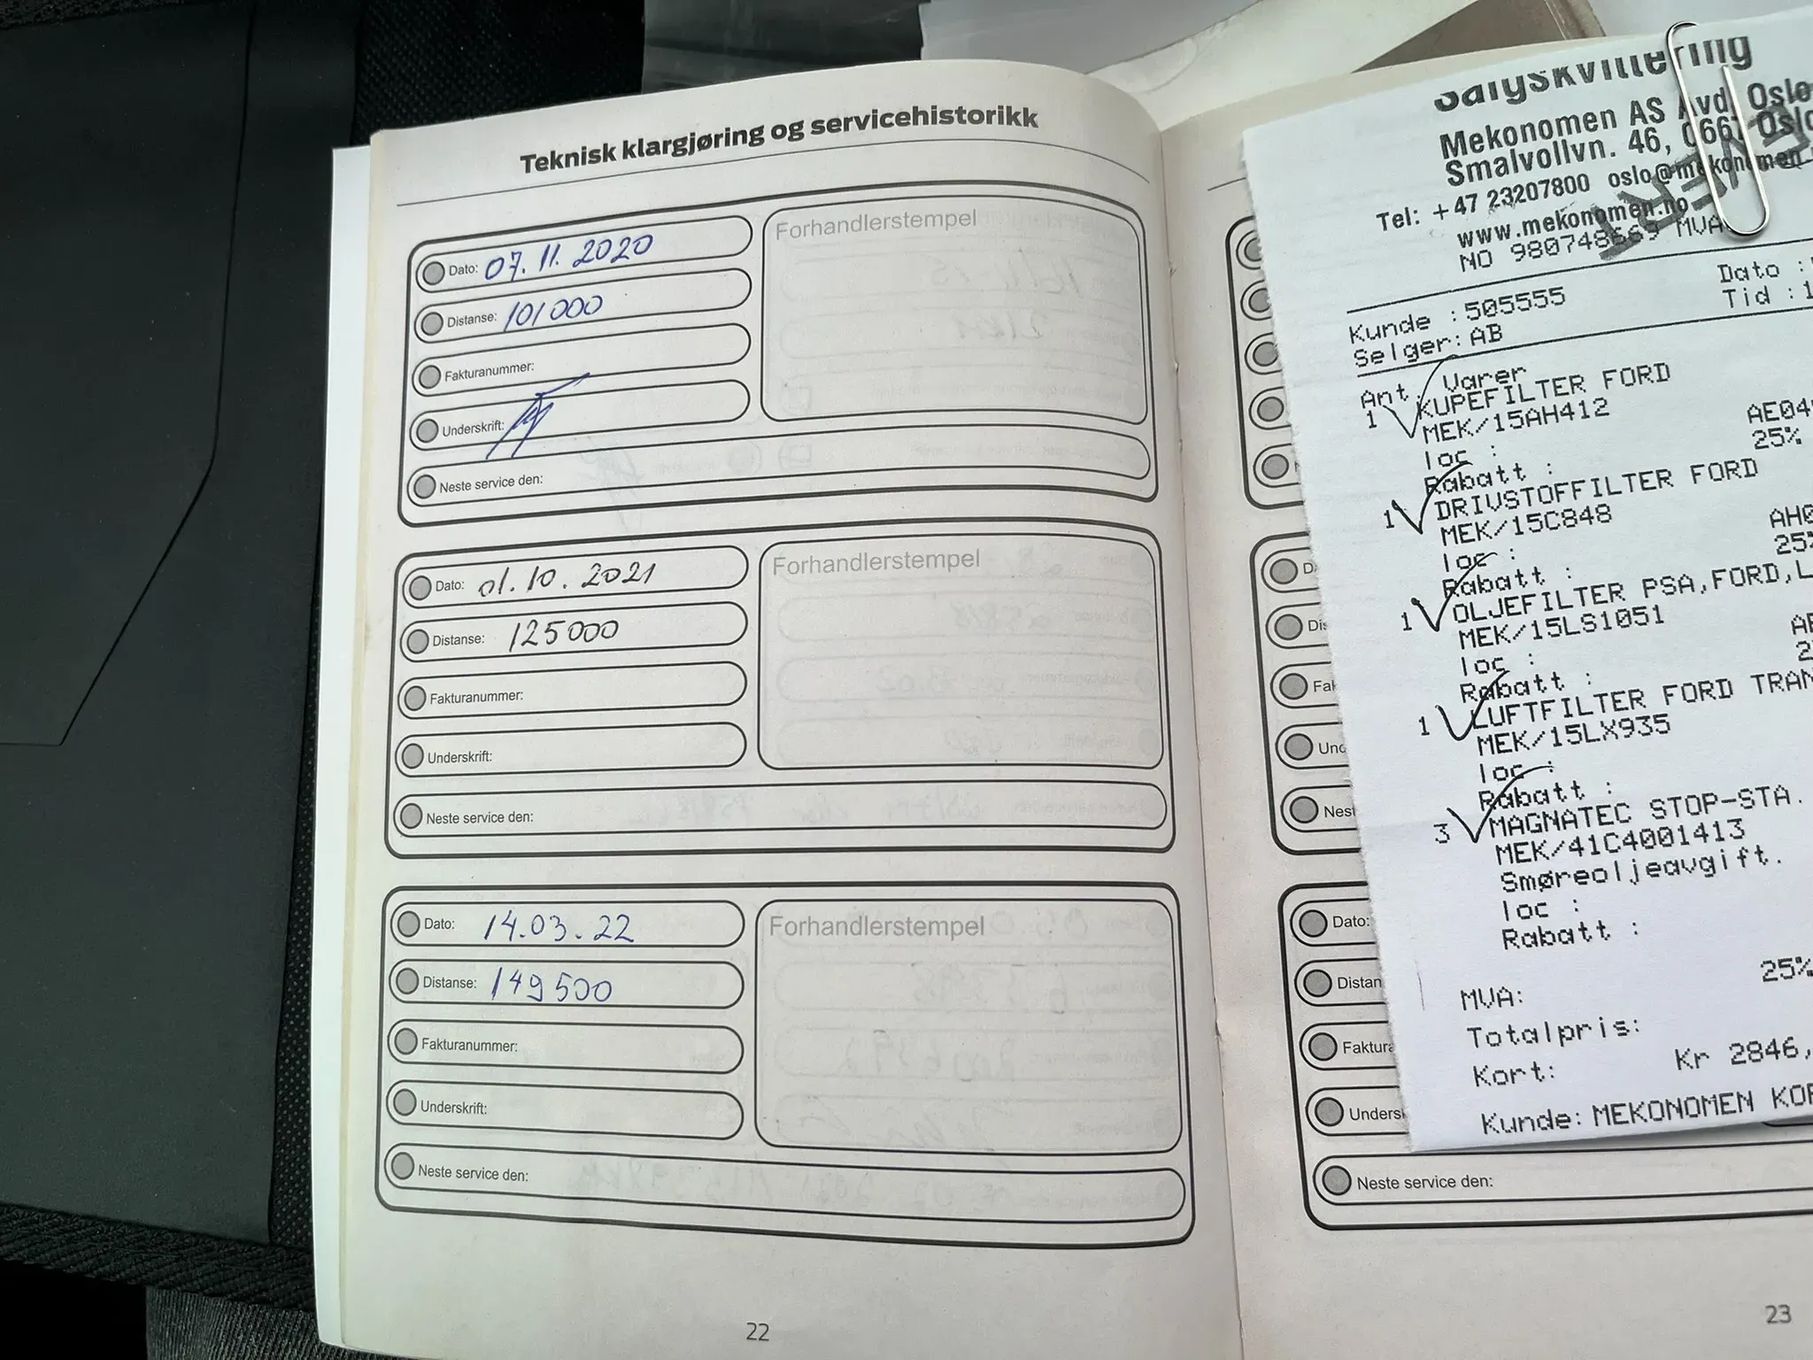 Teknisk klargjøring og servicehistorikk
Dato: 07.11.2020
Forhandlerstempel
Distanse: 101000
Fakturanummer:
Underskrift:
Neste service den:
Dato: 01.10.2021
Forhandlerstempel
Distanse: 125000
Fakturanummer:
Underskrift:
Neste service den:
Dato: 14.03.22
Forhandlerstempel
Distanse: 149500
Fakturanummer:
Underskrift:
Neste service den:
22
Salgskvittering
Mekonomen AS Avd. Oslo
Smalvollvn. 46, 0667 Oslo
Tel: +47 23207800 oslo@mekonomen
www.mekonomen.no
NO 980748669 MVA
Dato :
Kunde :505555
Tid :1
Selger:AB
Ant. Varer
1 KUPEFILTER FORD
MEK/15AH412 AE04
loc : 25%
Rabatt :
1 DRIVSTOFFILTER FORD
MEK/15C848 AH0
loc : 25%
Rabatt :
1 OLJEFILTER PSA,FORD,L
MEK/15LS1051
loc :
Rabatt :
1 LUFTFILTER FORD TRAN
MEK/15LX935
loc :
Rabatt :
3 MAGNATEC STOP-STA.
MEK/41C4001413
Smøreoljeavgift.
loc :
Rabatt :
25%
MVA:
Totalpris:
Kort: Kr 2846,
Kunde: MEKONOMEN KOR
Dato:
Distan
Faktura
Undersk
Neste service den:
23